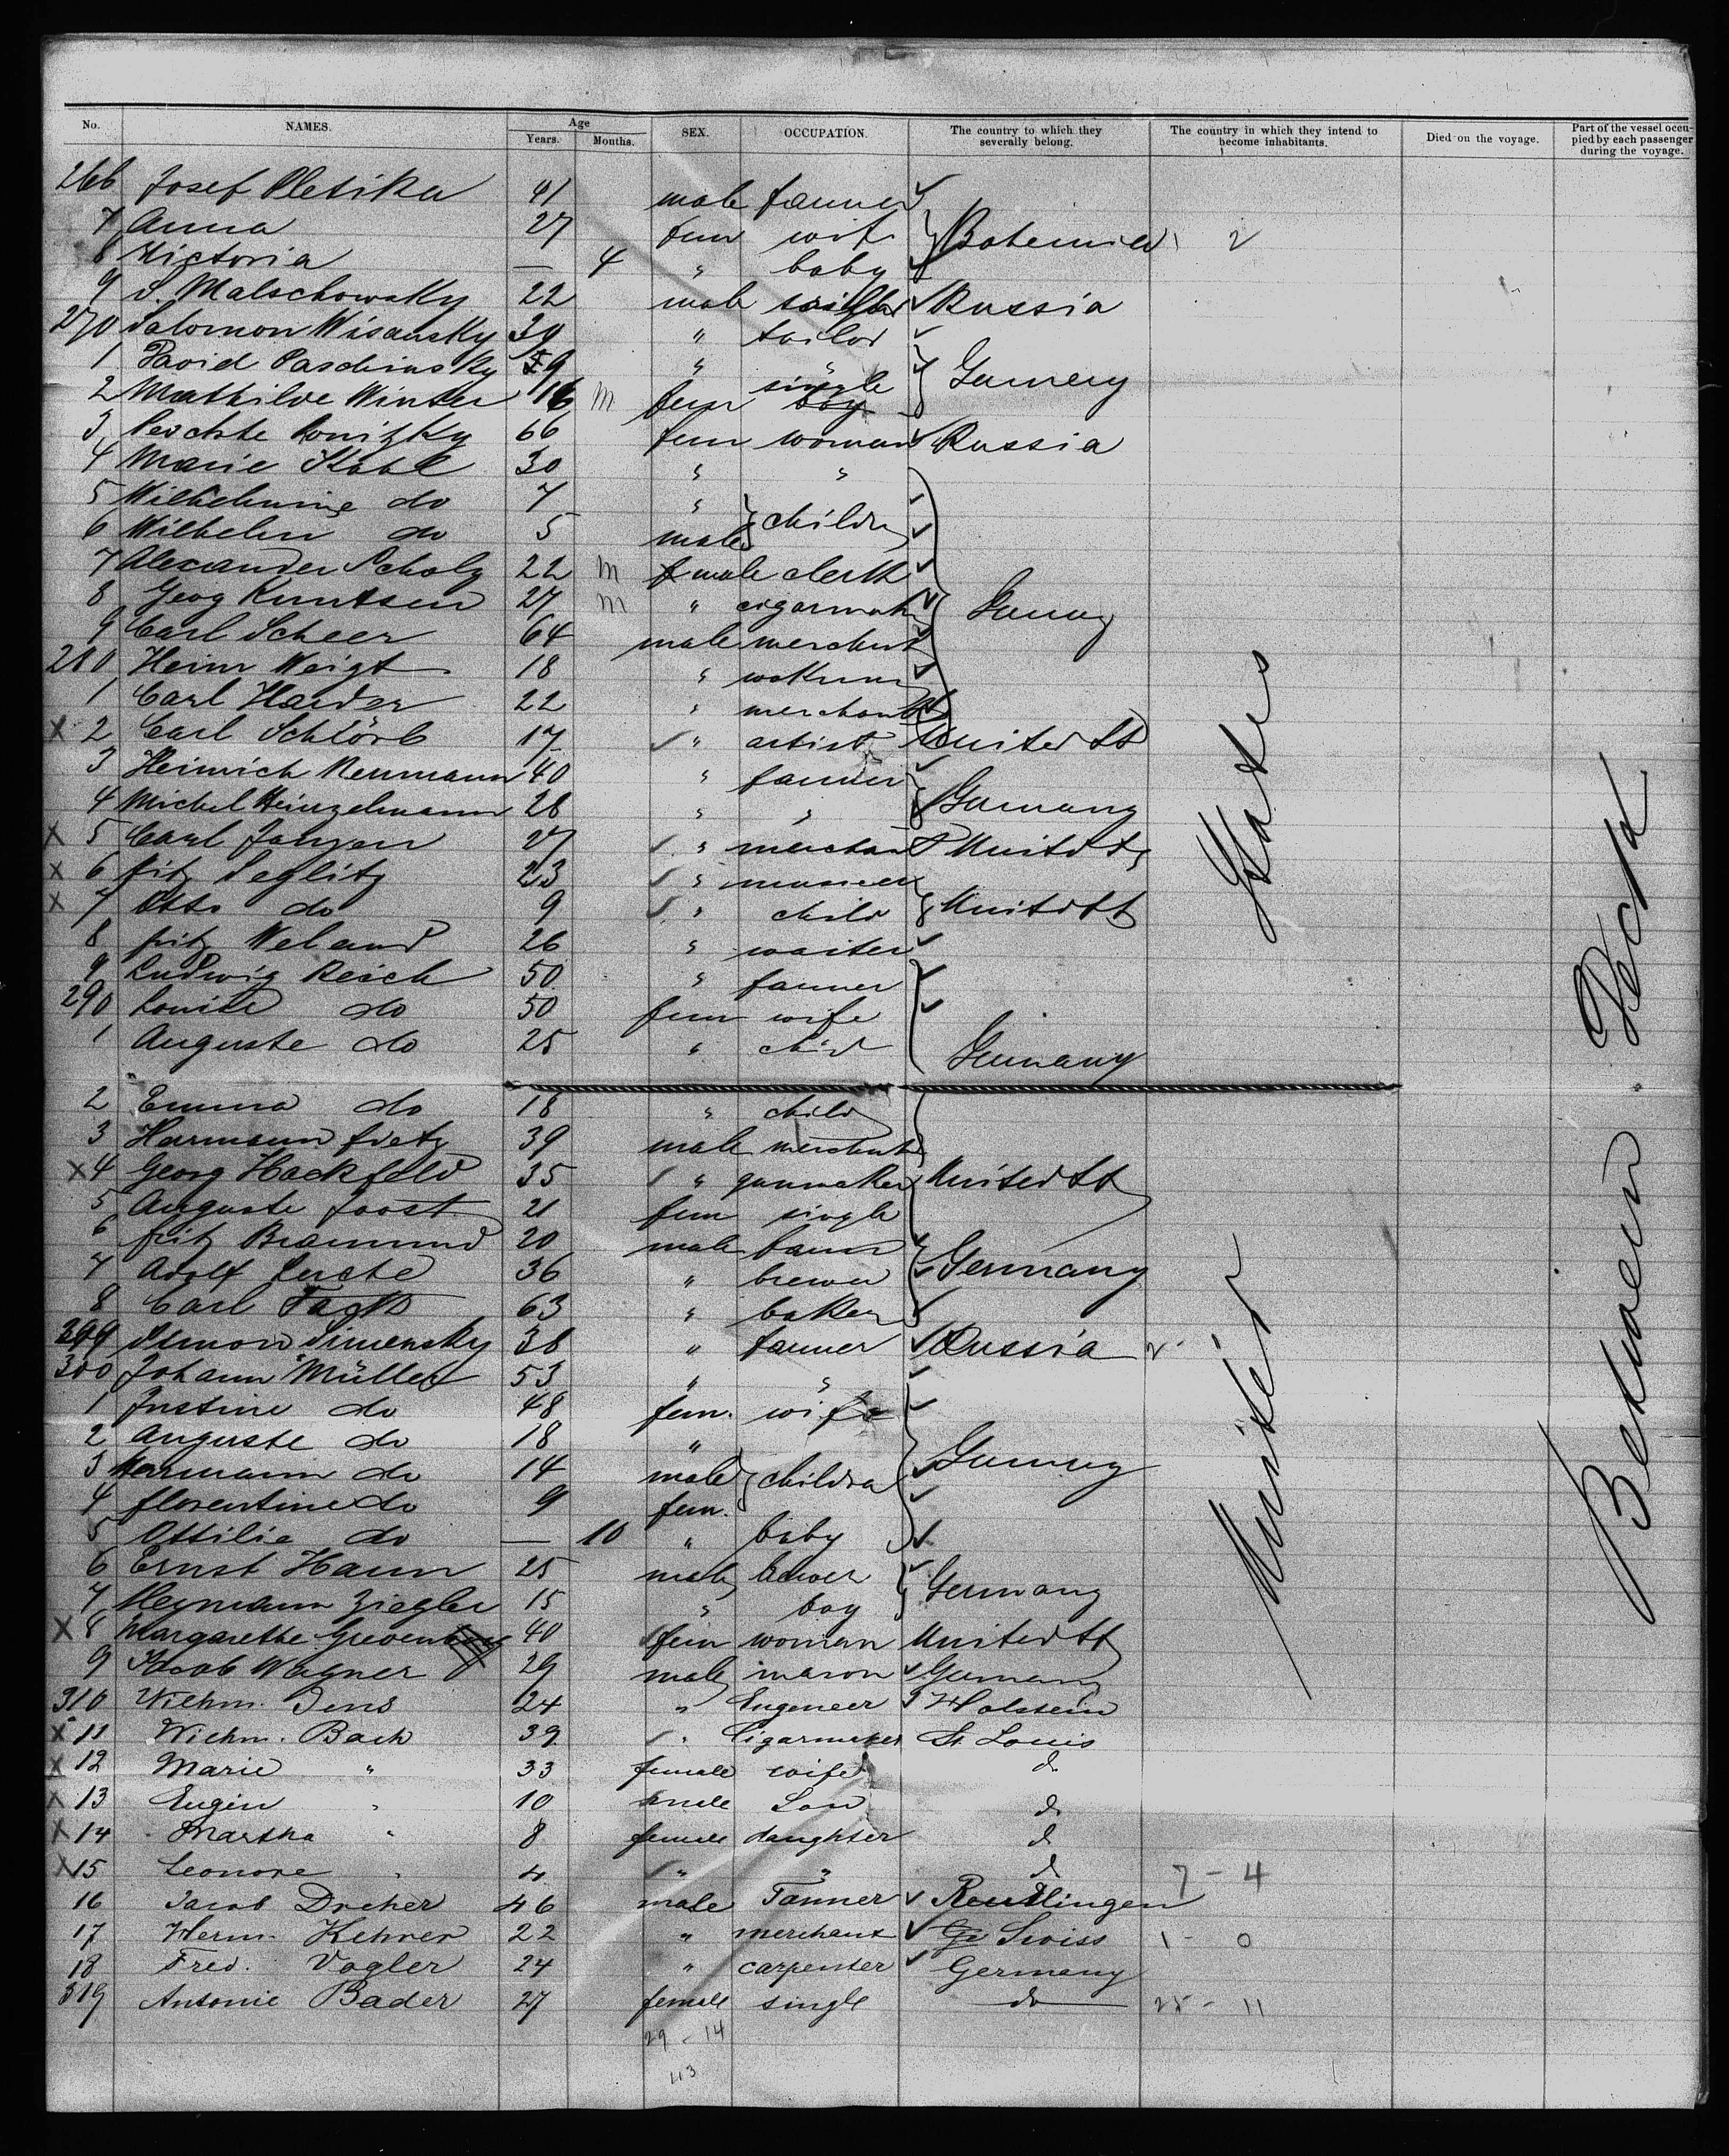 No. NAMES. Age Years. Months. SEX. OCCUPATION. The country to which they severally belong. The country in which they intend to become inhabitants. Died on the voyage. Part of the vessel occupied by each passenger during the voyage.
266 Josef Pletika 41 male farmer
7 Anna 27 fem wife Bohemia 2
8 Victoria — 4 " baby
9 S. Malschowsky 22 male Russia
270 Salomon Wisansky 39 " tailor
1 David Paschinsky 59 " " Germany
2 Mathilde Winter 16 m fem single
3 66 fem woman Russia
4 Marie 30 " "
5 Wilhelmine do 7 "
6 Wilhelm do 5 male childr
7 Alexander Scholz 22 m male clerk
8 Georg Knutsen 27 m " cigarmak Germany
9 Carl Scheer 64 male merchant
280 Heinr Weigt 18 "
1 Carl Harder 22 " merchant
X 2 Carl Schlörb 17 " artist United St
3 Heinrich Neumann 40 " farmer
4 Michel Heinzelmann 28 " " Germany
X 5 Carl Janzen 27 " merchant United St
X 6 Fritz Seglitz 23 "
X 7 Otto do 9 " child United St
8 Fritz Weland 26 " waiter
9 Ludwig Reich 50 " farmer
290 Louise do 50 fem wife
1 Auguste do 25 " child Germany
2 Emma do 18 " child
3 Harmann Fietz 39 male merchant
X 4 Georg Hackfeld 35 " gunmaker United St
5 Auguste Joost 21 fem single
6 Fritz 20 male farmer
7 Adolf Lerche 36 " brewer Germany
8 Carl 63 " baker
299 Simon Simensky 38 " farmer Russia
300 Johann Müller 53 " "
1 Justine do 48 fem. wife
2 Auguste do 18 "
3 Hermann do 14 male children Germany
4 Florentine do 9 fem.
5 Ottilie do — 10 " baby
6 Ernst Hann 25 male brewer
7 Heymann Ziegler 15 " boy Germany
X 8 Margarethe 40 fem woman United St
9 Jacob Wagner 29 male mason Germany
310 Wilhm. Jens 24 " Engeneer Holstein
X 11 Wilhm. Bach 39 " Cigarmaker St Louis
X 12 Marie " 33 female wife d
X 13 Eugen " 10 male Son d
X 14 Martha " 8 female daughter d
X 15 Leonore " 4 " " d 7 - 4
16 Jacob Dreher 46 male Tanner Reutlingen
17 Herm. Kehrer 22 " merchant Swiss 1 - 0
18 Fred. Vogler 24 " carpenter Germany
319 Antonie Bader 27 female single do 25 - 11
29 - 14
43
United States
Between Deck